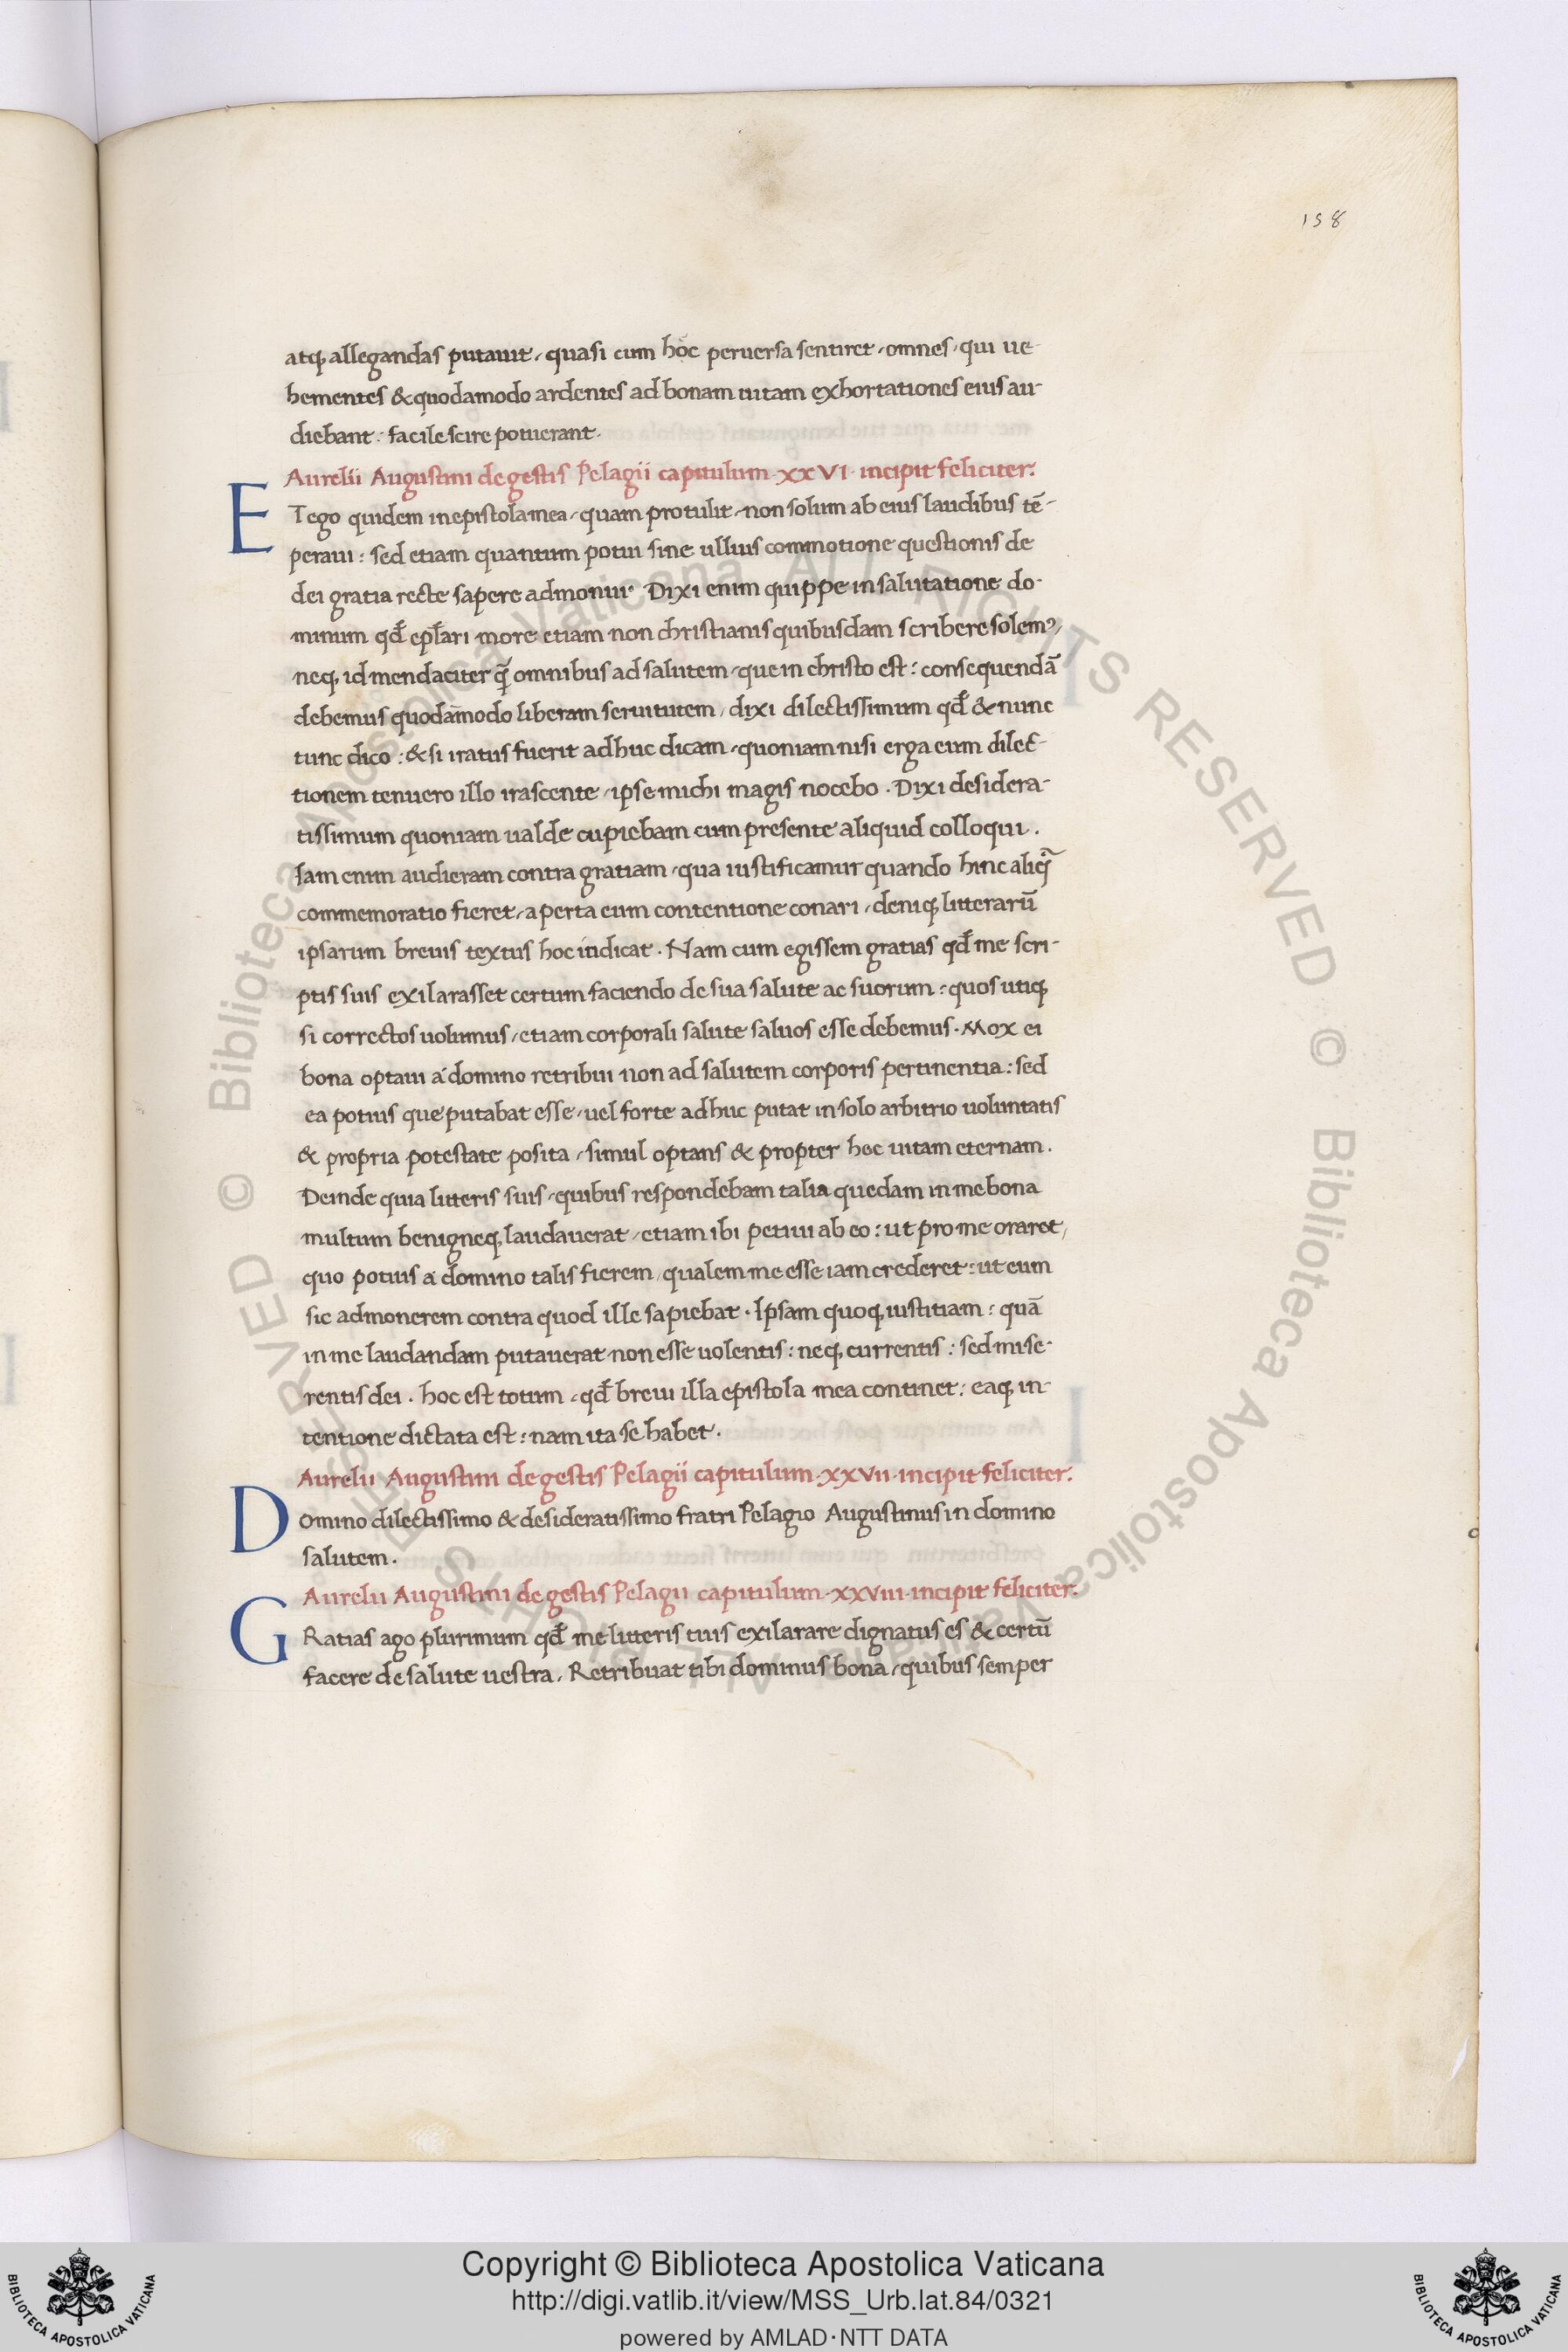 158
atq; allegandas putauit, quasi cum hoc peruersa sentiret, omnes, qui ue-
hementes & quodamodo ardentes ad bonam uitam exhortationes eius au-
diebant: facile scire potuerant.
Aurelii Augustini de gestis Pelagii capitulum .XXVI. incipit feliciter.
ET ego quidem in epistola mea, quam protulit, non solum ab eius laudibus tē-
peraui: sed etiam quantum potui sine ullius commotione questionis de
dei gratia recte sapere admonui. Dixi enim quippe in salutatione do-
minum qđ ep̄lari more etiam non christianis quibusdam scribere solemꝰ,
neq; id mendaciter q̄ omnibus ad salutem, que in christo est: consequendā
debemus quodāmodo liberam seruitutem, dixi dilectissimum qđ & nunc
tunc dico: & si iratus fuerit adhuc dicam, quoniam nisi erga eum dilec-
tionem tenuero illo irascente, ipse michi magis nocebo. Dixi desidera-
tissimum quoniam ualde cupiebam cum presente aliquid colloqui.
Iam enim audieram contra gratiam, qua iustificamur quando hinc aliq̄
commemoratio fieret, aperta eum contentione conari, deniq; litterarū
ipsarum breuis textus hoc indicat. Nam cum egissem gratias qđ me scri-
ptis suis exilarasset certum faciendo de sua salute ac suorum: quos utiq;
si correctos uolumus, etiam corporali salute saluos esse debemus. Mox ei
bona optaui a domino retribui non ad salutem corporis pertinentia: sed
ea potius que putabat esse, uel forte adhuc putat in solo arbitrio uoluntatis
& propria potestate posita, simul optans & propter hec uitam eternam.
Deinde quia litteris suis, quibus respondebam talia quedam in me bona
multum benigneq; laudauerat, etiam ibi petiui ab eo: ut pro me oraret,
quo potius a domino talis fierem, qualem me esse iam crederet: ut eum
sic admonerem contra quod ille sapiebat. Ipsam quoq; iustitiam: quā
in me laudandam putauerat non esse uolentis: neq; currentis: sed mise-
rentis dei. hoc est totum, qđ breui illa epistola mea continet: eaq; in-
tentione dictata est: nam ita se habet.
Aurelii Augustini de gestis Pelagii capitulum .XXVII. incipit feliciter.
Domino dilectissimo & desideratissimo fratri Pelagio Augustinus in domino
salutem.
Aurelii Augustini de gestis Pelagii capitulum .XXVIII. incipit feliciter.
GRatias ago plurimum qđ me litteris tuis exilarare dignatus es & certū
facere de salute uestra, Retribuat tibi dominus bona, quibus semper
© Biblioteca Apostolica Vaticana ALL RIGHTS RESERVED © Biblioteca Apostolica Vaticana ALL RIGHTS RESERVED
Copyright © Biblioteca Apostolica Vaticana
http://digi.vatlib.it/view/MSS_Urb.lat.84/0321
powered by AMLAD·NTT DATA
BIBLIOTECA APOSTOLICA VATICANA
BIBLIOTECA APOSTOLICA VATICANA